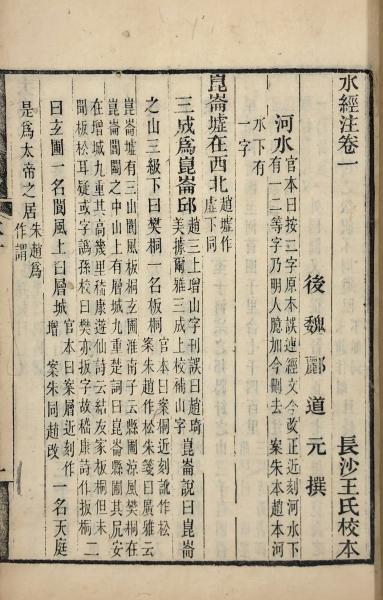 水經注卷一
後魏酈道元撰 長沙王氏校本
河水 官本曰按二字原本誤連經文今改正近刻河水下
有一二等字乃明人臆加今刪去 案朱本趙本河
水下有
一字
崑崙墟在西北 趙墟作
虛下同
三成爲崑崙邱 趙三上增山字刊誤曰趙琦
美據爾雅三成上校補山字 崑崙說曰崑崙
之山三級下曰樊桐一名板桐 官本曰案桐近刻訛作松
案朱趙作松朱箋曰廣雅云
崑崙墟有三山閬風板桐玄圃淮南子云縣圃涼風樊桐在
崑崙閶闔之中山上有層城九重楚詞曰崑崙縣圃其尻安
在增城九重其高幾里嵇康遊仙詩云結友家板桐但未
聞板松耳疑或字譌孫校曰樊亦扳字故嵇康詩作扳桐 二
曰玄圃一名閬風上曰層城 官本曰案層近刻作
增 案朱同趙改 一名天庭
是爲太帝之居 朱趙爲
作謂